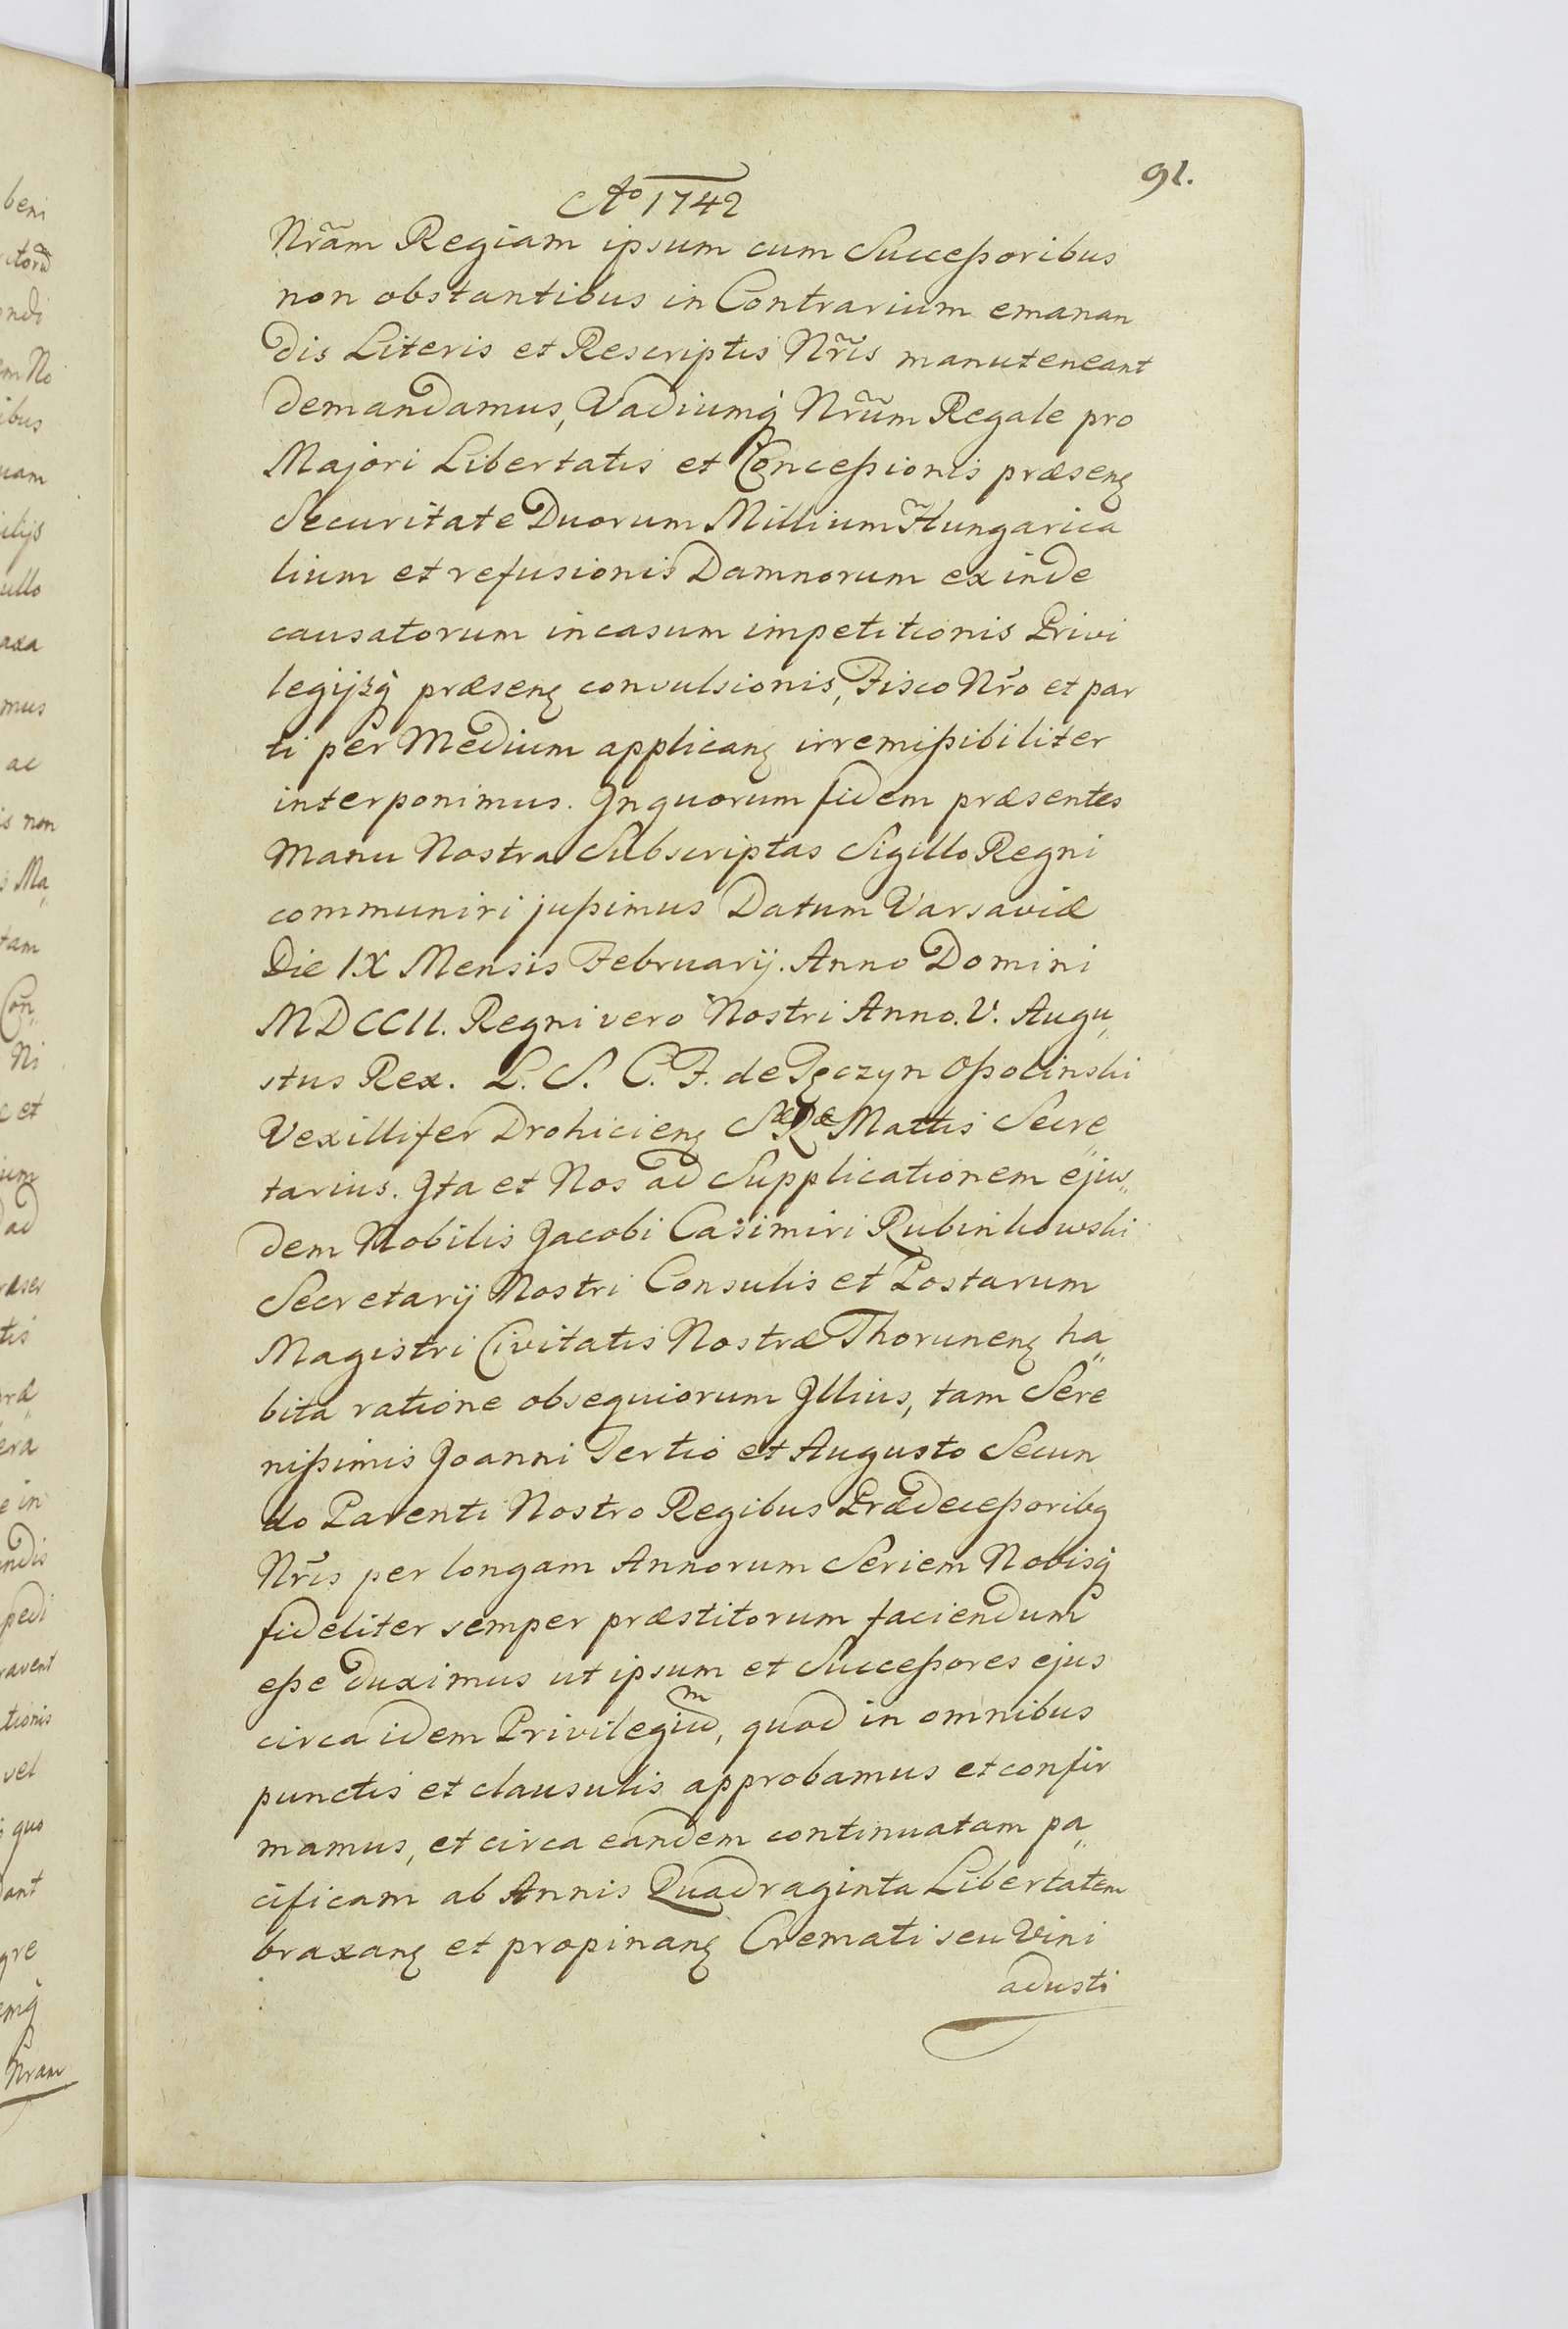 91.
Ao 1742
Nrãm Regiam ipsum cum Succeßoribus
non obstantibus in Contrarium emanan
dis Literis et Rescriptis Nrĩs manuteneant
demandamus, Vadiumq Nrũm Regale pro
Majori Libertatis et Conceßionis præsenȝ
Securitate Duorum Millium Hungarica
lium et refusionis Damnorum exinde
causatorum in casum impetitionis Privi
legijsq præsenȝ convulsionis, Fisco Nr̃o et par
ti per Medium applicanȝ irremißibiliter
interponimus. Jn quorum fidem præsentes
Manu Nostra Subscriptas Sigillo Regni
communiri jußimus Datum Varsaviæ
Die IX Mensis Februarij. Anno Domini
MDCCII. Regni vero Nostri Anno. V. Augu„
stus Rex. L. S. C. F. de Tęczyn Oßolinski
Vexillifer Drohicienȝ Sæ Ræ Mattis Secre
tarius. Jta et Nos ad Supplicationem ejus„
dem Nobilis Jacobi Casimiri Rubinkowski
Secretarij Nostri Consulis et Postarum
Magistri Civitatis Nostræ Thorunenȝ ha„
bita ratione obsequiorum Jllius, tam Sere
nißimis Joanni Tertio et Augusto Secun
do Parenti Nostro Regibus Prædeceßoribȝ
Nrĩs per longam Annorum Seriem Nobisq
fideliter semper præstitorum faciendum
eße duximus ut ipsum et Succeßores ejus
circa idem Privilegiũm, quod in omnibus
punctis et clausulis approbamus et confir
mamus, et circa eandem continuatam pa„
cificam ab Annis Quadraginta Libertatem
braxanȝ et propinanȝ Cremati seu Vini
adusti
beni
ndi
ibus
ullo
axa
mus
ac
s non
Ma„
tam
Con„
Ni
et
ad
tis
era
e in
andis
tionis
vel
quo
gre
Nram